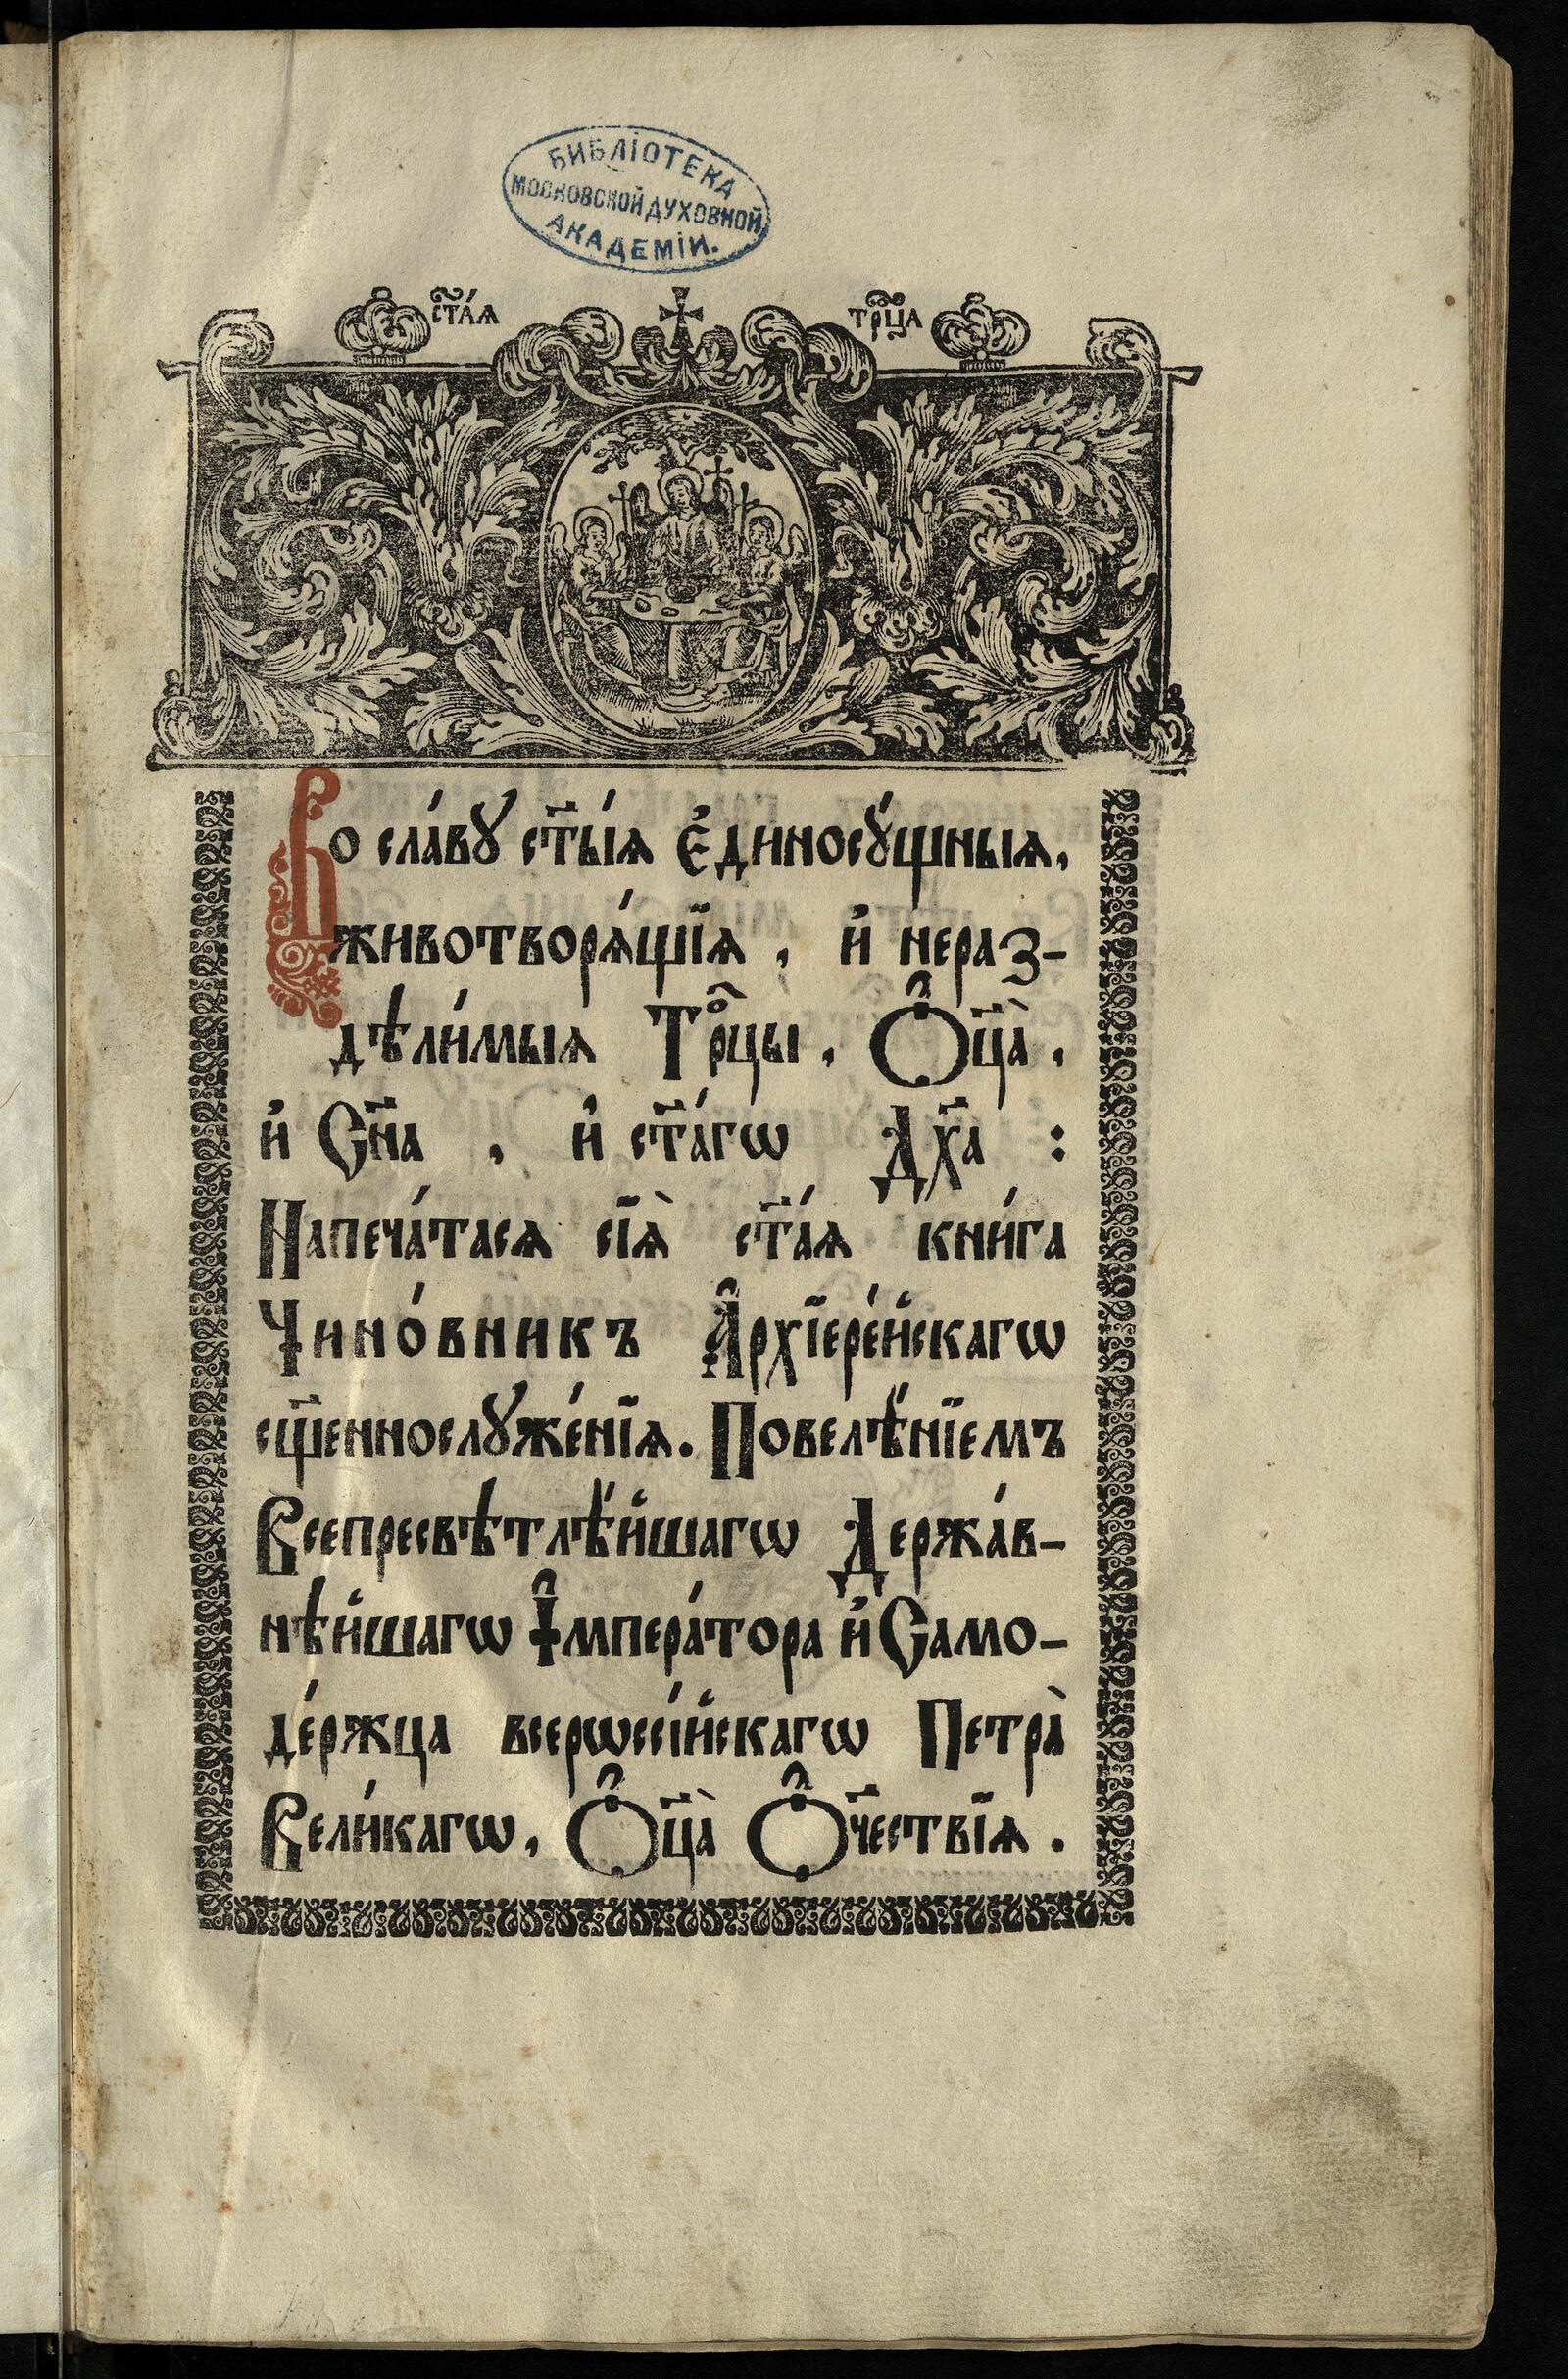 БИБЛІОТЕКА
МОСКОВСКОЙ ДУХОВНОЙ
АКАДЕМІИ.
ст҃а́ѧ трⷪ҇ца
Во сла́вꙋ ст҃ы́ѧ є҆диносꙋ́щныѧ,
животворѧ́щїѧ, и҆ нераз-
дѣли́мыѧ Трⷪ҇цы, Ѻ҆ц҃а̀,
и҆ Сн҃а, и҆ ст҃а́гѡ Дх҃а:
Напеча́тасѧ сїѧ̀ ст҃а́ѧ кни́га
Чино́вникъ А҆рхїере́йскагѡ
сщ҃еннослꙋже́нїѧ. Повелѣ́нїемъ
Всепресвѣтлѣ́йшагѡ Держа́в-
нѣйшагѡ І҆мпера́тора и҆ Само-
де́ржца всерѡссі́йскагѡ Петра̀
Вели́кагѡ, Ѻ҆ц҃а̀ Ѻ҆ч҃ествїѧ.